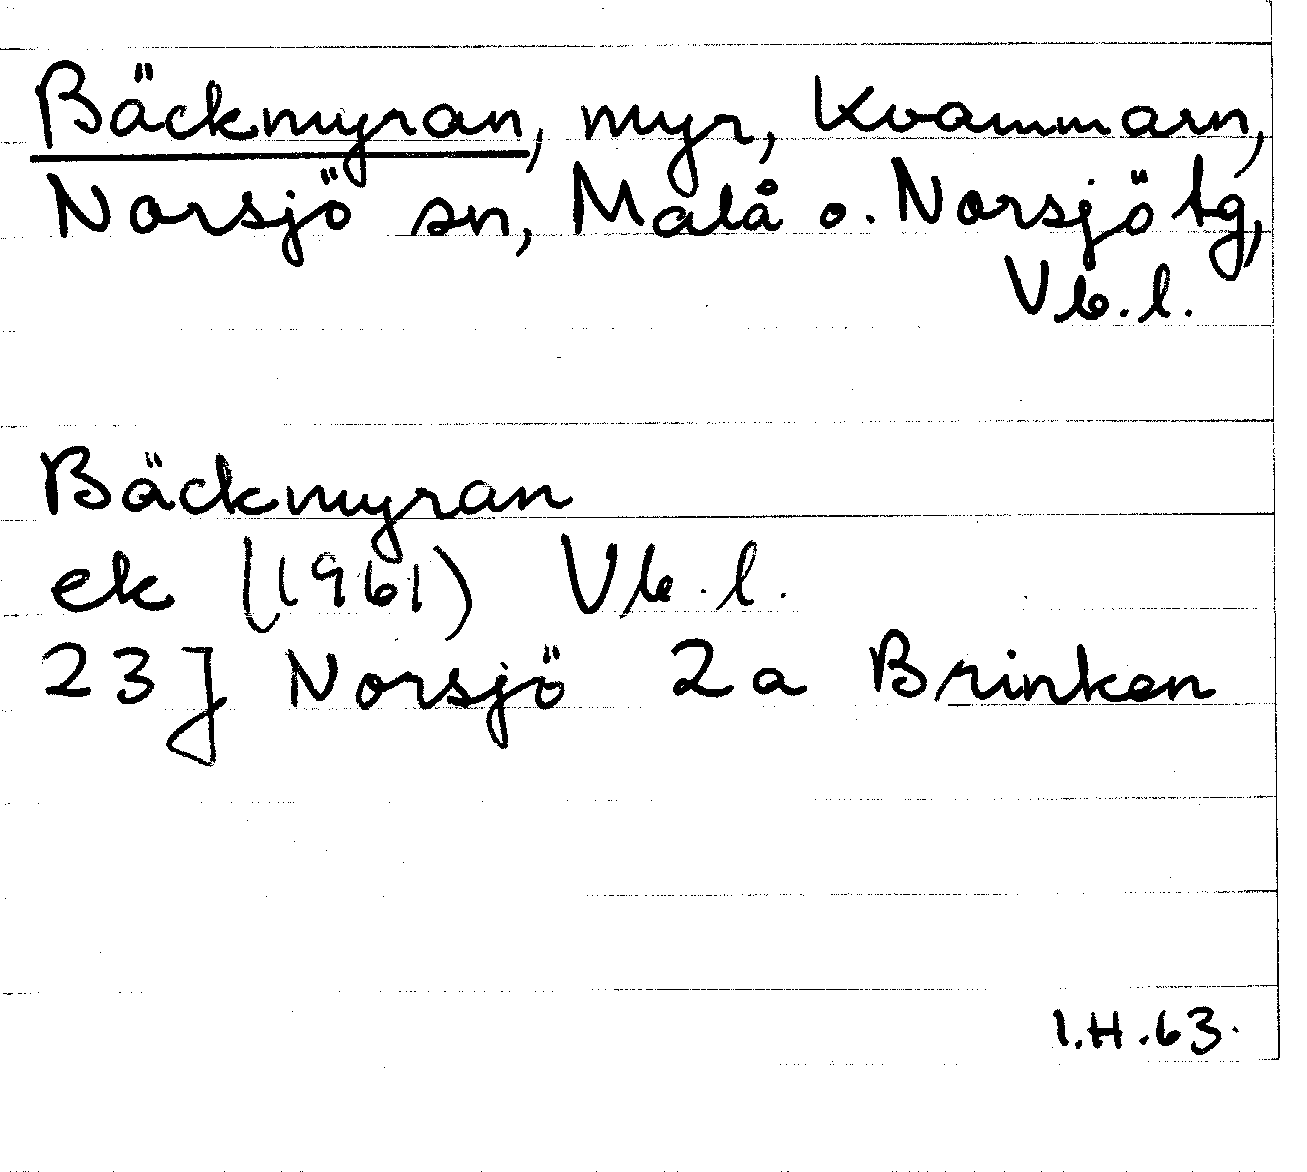 Bäckmyran, myr, Kvammarn,
Norsjö sn, Malå o. Norsjö tg,
Vb.l.
Bäckmyran
ek (1961) Vb.l.
23J Norsjö 2a Brinken
I.H.63.